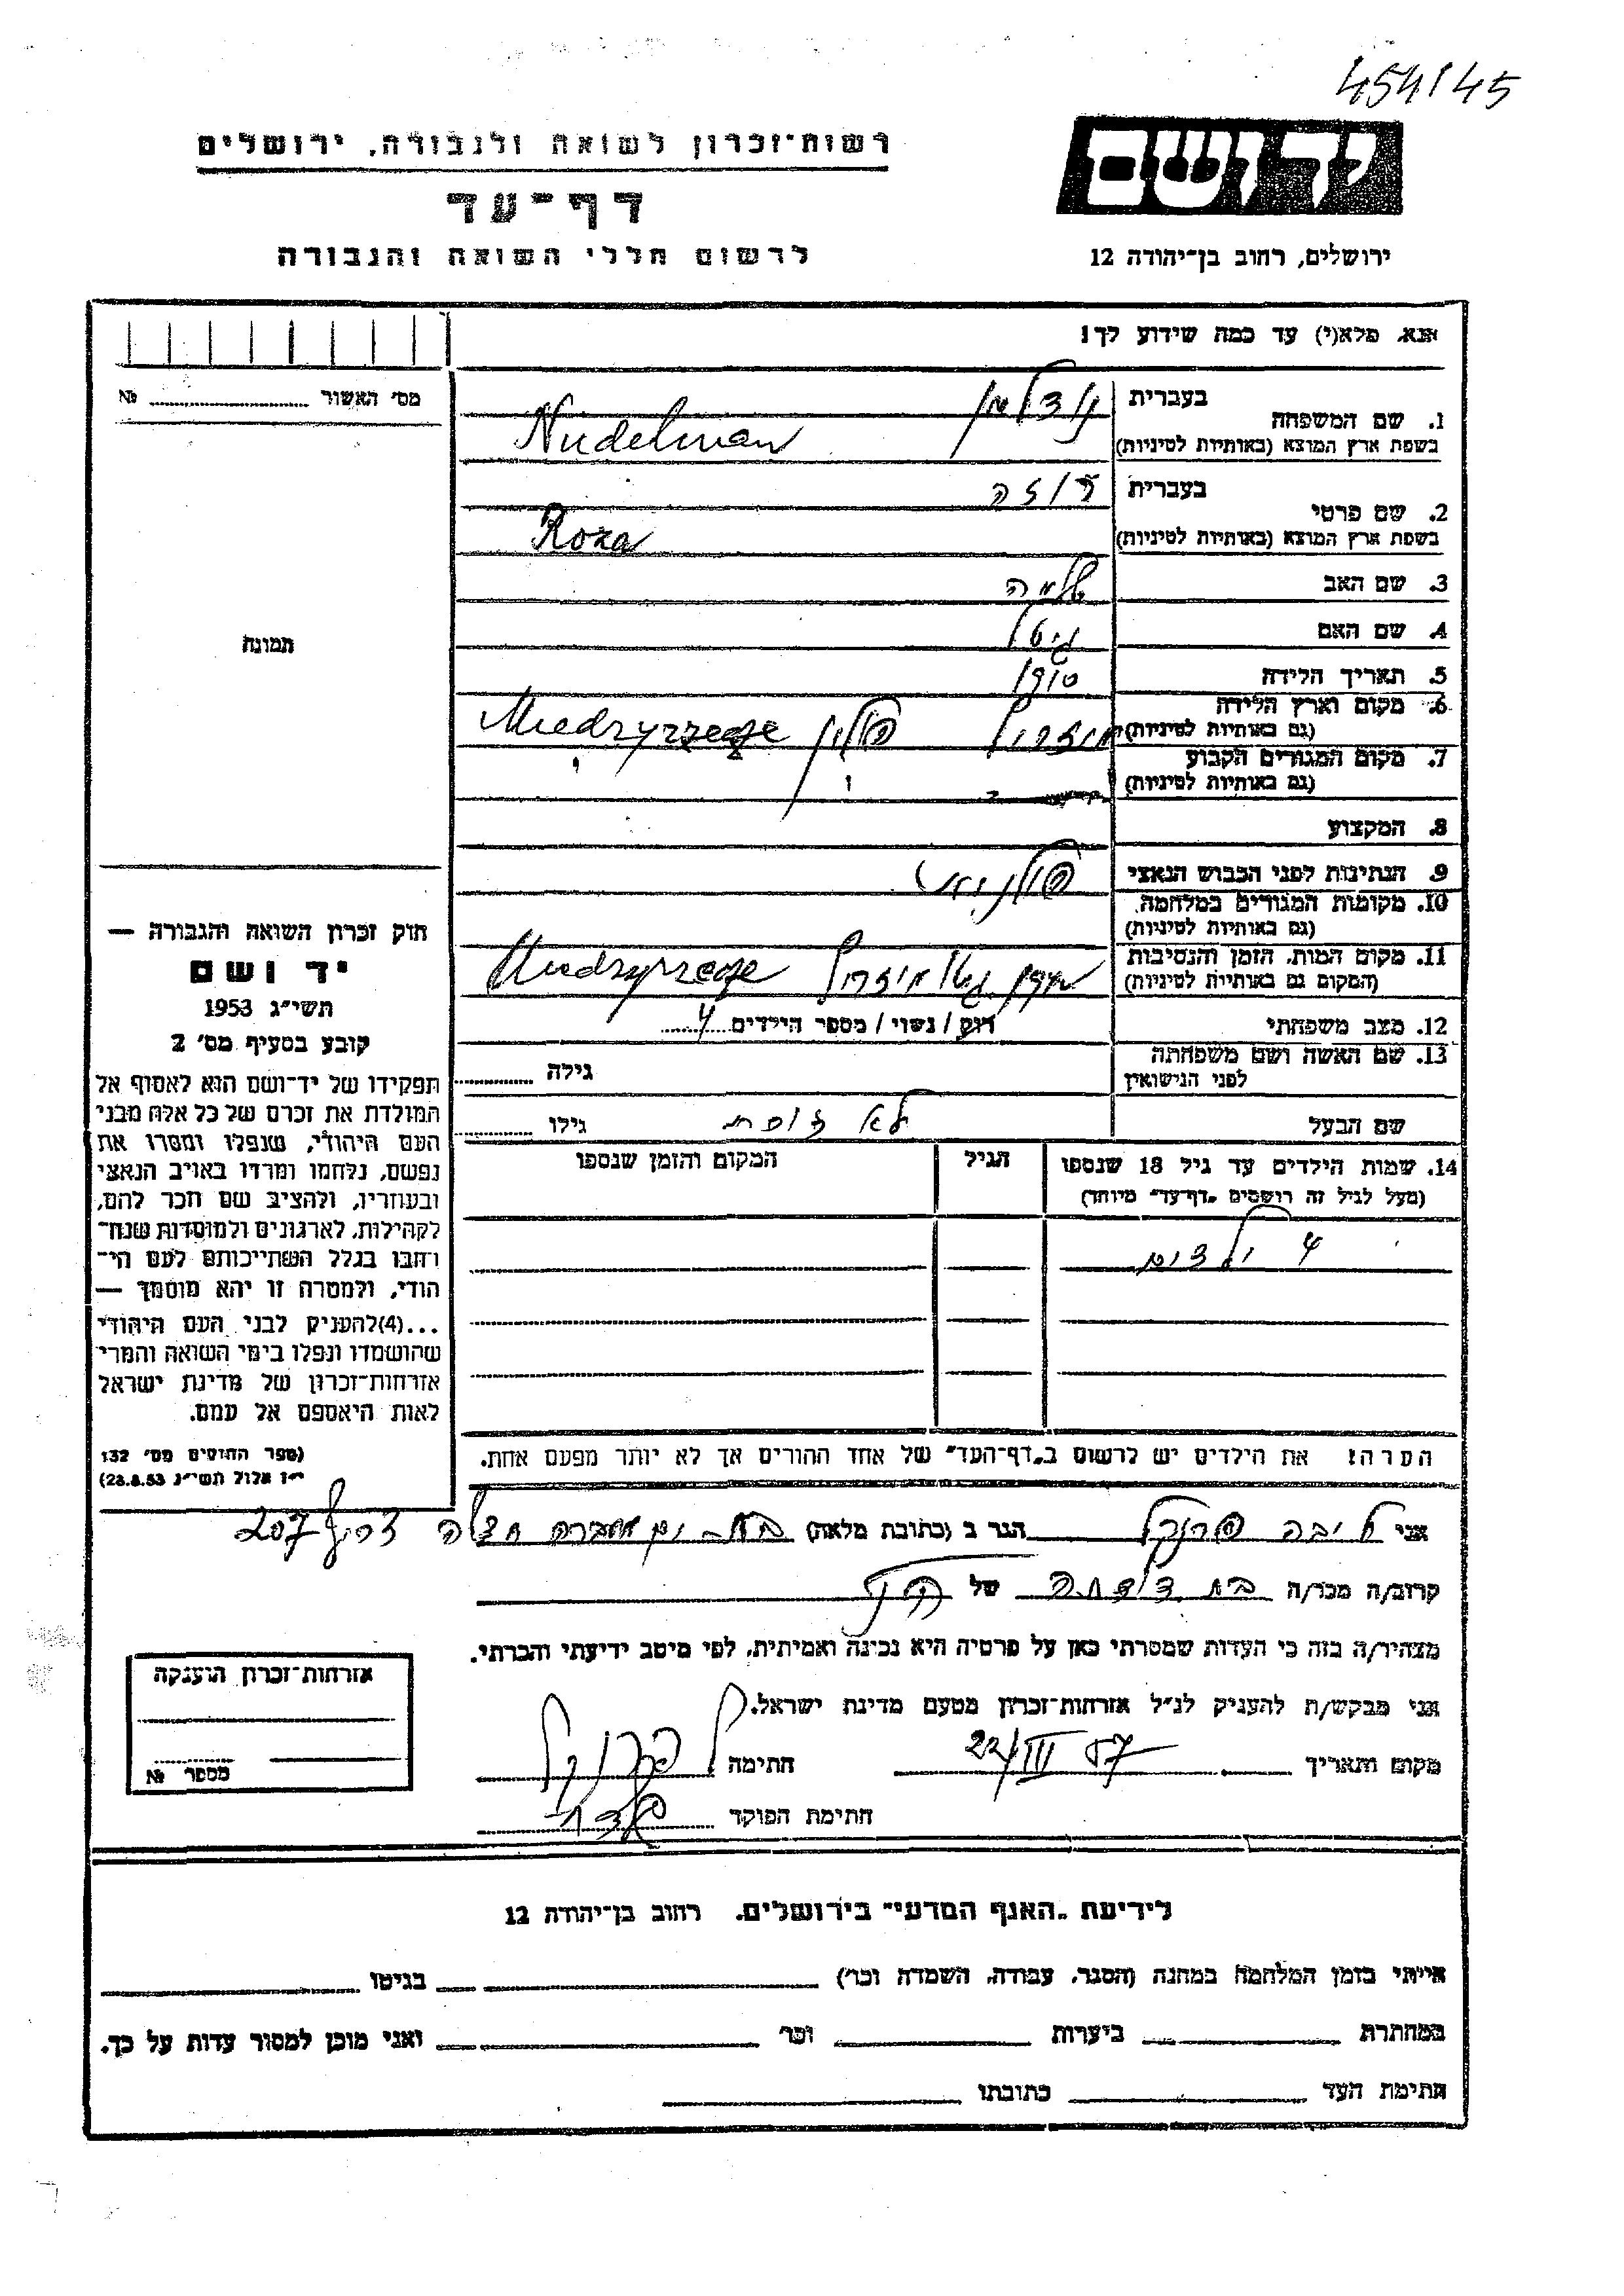 454/45
רשות־זכרון לשואה ולגבורה, ירושלים
דף־עד
לרשום חללי השואה והגבורה
יד ושם
ירושלים, רחוב בן־יהודה 12
אנא, מלא(י) עד כמה שידוע לך!
מס׳ האשור №
1. שם המשפחה בעברית נודלמן
בשפת ארץ המוצא (באותיות לטיניות) Nudelman
2. שם פרטי בעברית רוזה
בשפת ארץ המוצא (באותיות לטיניות) Roza
3. שם האב שלמה
4. שם האם גיטל
תמונה
5. תאריך הלידה
6. מקום וארץ הלידה (גם באותיות לטיניות) פולין Miedzyrzecze
7. מקום המגורים הקבוע (גם באותיות לטיניות)
8. המקצוע
9. הנתינות לפני הכבוש הנאצי פולנית
10. מקומות המגורים במלחמה (גם באותיות לטיניות)
11. מקום המות, הזמן והנסיבות (המקום גם באותיות לטיניות) Miedzyrzecze
12. מצב משפחתי רווק / נשוי / מספר הילדים 4
13. שם האשה ושם משפחתה לפני הנישואין גילה
שם הבעל לא זוכרת גילו
14. שמות הילדים עד גיל 18 שנספו הגיל המקום והזמן שנספו
(מעל לגיל זה רושמים „דף־עד״ מיוחד)
4 ילדים
הערה: את הילדים יש לרשום ב„דף־העד״ של אחד ההורים אך לא יותר מפעם אחת.
חוק זכרון השואה והגבורה —
יד ושם
תשי״ג 1953
קובע בסעיף מס׳ 2
תפקידו של יד־ושם הוא לאסוף אל
המולדת את זכרם של כל אלה מבני
העם היהודי, שנפלו ומסרו את
נפשם, נלחמו ומרדו באויב הנאצי
ובעוזריו, ולהציב שם וזכר להם,
לקהילות, לארגונים ולמוסדות שנח־
רבו בגלל השתייכותם לעם הי־
הודי, ולמטרה זו יהא מוסמך —
...(4)להעניק לבני העם היהודי
שהושמדו ונפלו בימי השואה והמרי
אזרחות־זכרון של מדינת ישראל
לאות היאספם אל עמם.
(ספר החוקים מס׳ 132
י״ז אלול תשי״ג 28.8.53)
אני ליבה פרנקל הגר ב (כתובת מלאה) בת־ים 207
קרוב/ה מכר/ה בת דודה של
מצהיר/ה בזה כי העדות שמסרתי כאן על פרטיה היא נכונה ואמיתית, לפי מיטב ידיעתי והכרתי.
אני מבקש/ת להעניק לנ״ל אזרחות־זכרון מטעם מדינת ישראל.
מקום ותאריך 22/III 57 חתימה ל פרנקל
חתימת הפוקד
אזרחות־זכרון הוענקה
מספר №
לידיעת „האגף המדעי״ בירושלים, רחוב בן־יהודה 12
הייתי בזמן המלחמה במחנה (הסגר, עבודה, השמדה וכו׳) בגיטו
במחתרת ביערות וכו׳ ואני מוכן למסור עדות על כך.
חתימת העד כתובתו